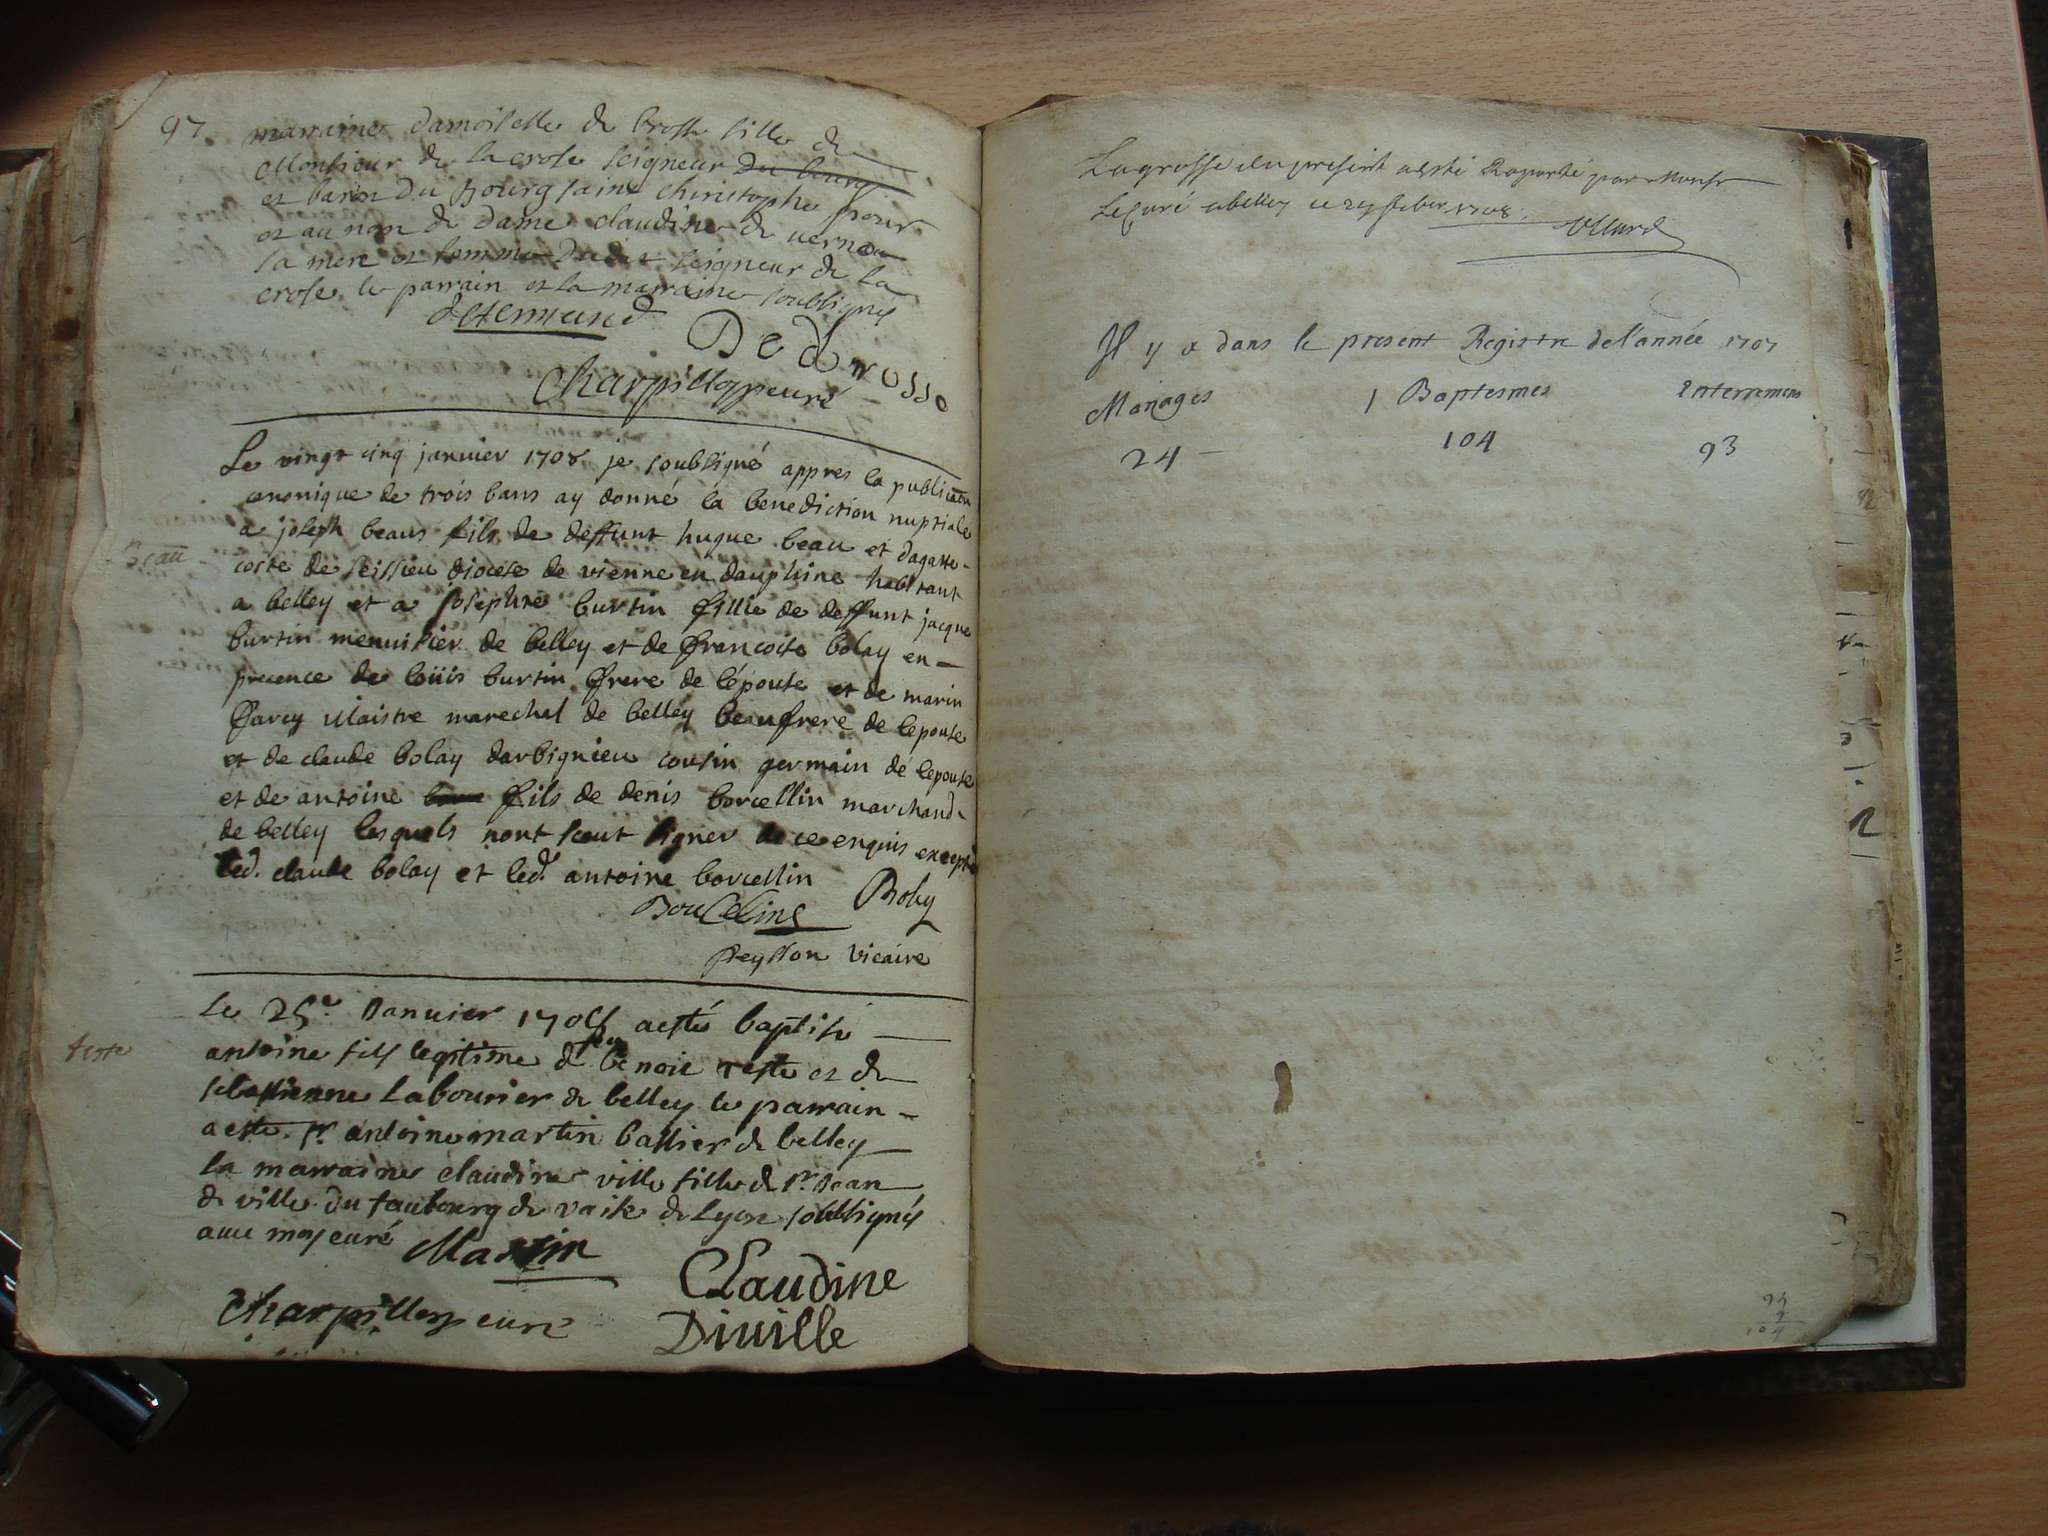 97
marraine damoiselle de brosse fille de
Monsieur de la crose seigneur du bourg
et baron du Bourg saint christophe pour
et au nom de dame claudine de
sa mere et femme dudit seigneur de la
crose. le parrain et la marraine soubsignés
De Brosse
Charpilloz curé
Le vingt cinq janvier 1708 je soubsigné appres la publicaõn
canonique de trois bans ay donné la benediction nuptiale
Beau
a joseph beaus fils de deffunt hugue beau et dagatte
coste de seissieu diocese de vienne en dauphine habitant
a belley et a josephte burtin fillie de deffunt jacque
burtin menuisier de belley et de francoise bolay en
presence de loüis burtin frere de lépouse et de marin
farcy Maistre marechal de belley beaufrere de lepouse
et de claude bolay darbignieu cousin germain dé lepouse
et de antoine fils de denis borcellin marchand
de belley lesquels nont sceut signer de ce enquis excepté
led. claude bolay et led. antoine borcellin
Boucelins Boley
Peysson vicaire
Le 25e Janvier 1708 a esté baptisé
teste
antoine fils legitime de sr benoit teste et de
sebastienne Labourier de belley le parrain
a esté sr antoine martin de belley
la marraine claudine ville fille de sr Jean
de ville du faubourg de vaise de Lyon soubsignés
avec moy curé
Martin
Claudine
Charpilloz curé
Diuille
La grosse du present a esté Raporté par Monsr
Le Curé a belley ce 1708.
Il y a dans le present Registre de l'année 1707
Mariages Baptesmes Enterremens
24 104 93
95
9
104